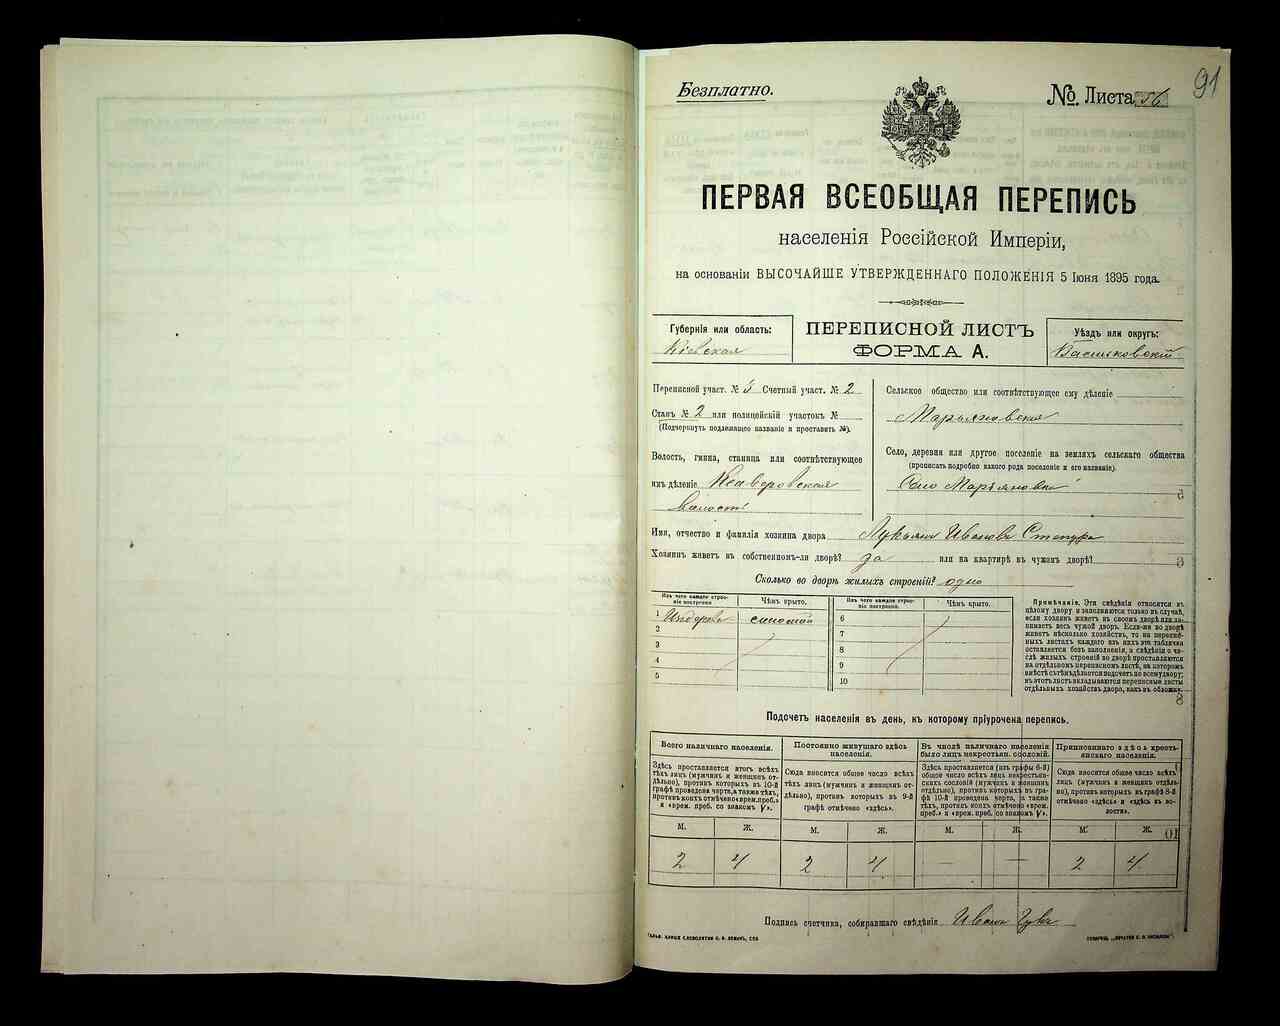 Безплатно.
№ Листа 56
91
ПЕРВАЯ ВСЕОБЩАЯ ПЕРЕПИСЬ
населенія Россійской Имперіи,
на основаніи ВЫСОЧАЙШЕ УТВЕРЖДЕННАГО ПОЛОЖЕНІЯ 5 Іюня 1895 года.
Губернія или область:
Кіевская
ПЕРЕПИСНОЙ ЛИСТЪ
ФОРМА А.
Уѣздъ или округъ:
Васильковскій
Переписной участ. № 5 Счетный участ. № 2
Станъ № 2 или полицейскій участокъ №
(Подчеркнуть подлежащее названіе и проставить №).
Волость, гмина, станица или соотвѣтствующее
имъ дѣленіе Ксаверовская
волость
Сельское общество или соотвѣтствующее ему дѣленіе
Марьяновское
Село, деревня или другое поселеніе на земляхъ сельскаго общества
(прописать подробно какого рода поселеніе и его названіе).
Село Марьяновка
Имя, отчество и фамилія хозяина двора Лукьянъ Ивановъ Степура
Хозяинъ живетъ въ собственномъ-ли дворѣ? да или на квартирѣ въ чужомъ дворѣ?
Сколько во дворѣ жилыхъ строеній? одно
Изъ чего каждое строеніе построено
Чѣмъ крыто.
Изъ чего каждое строеніе построено.
Чѣмъ крыто.
1 соломой
2
3
4
5
6
7
8
9
10
Примѣчаніе. Эти свѣдѣнія относятся къ
цѣлому двору и заполняются только въ случаѣ,
если хозяинъ живетъ въ своемъ дворѣ или занимаетъ весь чужой дворъ. Если-же во дворѣ
живетъ нѣсколько хозяйствъ, то на переписныхъ листахъ каждаго изъ нихъ эта табличка
оставляется безъ заполненія, а свѣдѣнія о числѣ жилыхъ строеній во дворѣ проставляются
на отдѣльномъ переписномъ листѣ, на которомъ
вмѣстѣ съ тѣмъ дѣлается подсчетъ по всему двору;
въ этотъ листъ вкладываются переписные листы
отдѣльныхъ хозяйствъ двора, какъ въ обложку.
Подсчетъ населенія въ день, къ которому пріурочена перепись.
Всего наличнаго населенія.
Здѣсь проставляется итогъ всѣхъ
тѣхъ лицъ (мужчинъ и женщинъ отдѣльно), противъ которыхъ въ 10-й
графѣ проведена черта, а также тѣхъ,
противъ коихъ отмѣчено «врем. преб.»
и «врем. преб. со знакомъ V».
Постоянно живущаго здѣсь
населенія.
Сюда вносится общее число всѣхъ
тѣхъ лицъ (мужчинъ и женщинъ отдѣльно), противъ которыхъ въ 9-й
графѣ отмѣчено «здѣсь».
Въ числѣ наличнаго населенія
было лицъ некрестьян. сословій.
Здѣсь проставляется (изъ графы 6-й)
общее число всѣхъ лицъ некрестьянскихъ сословій (мужчинъ и женщинъ
отдѣльно), противъ которыхъ въ графѣ 10-й проведена черта, а также
тѣхъ, противъ коихъ отмѣчено «врем.
преб.» и «врем. преб. со знакомъ V».
Приписаннаго здѣсь крестьянскаго населенія.
Сюда вносится общее число всѣхъ
лицъ (мужчинъ и женщинъ отдѣльно), противъ которыхъ въ графѣ 8-й
отмѣчено «здѣсь» и «здѣсь въ волости».
М. Ж. М. Ж. М. Ж. М. Ж.
2 4 2 4 — — 2 4
Подпись счетчика, собиравшаго свѣдѣнія Иванъ